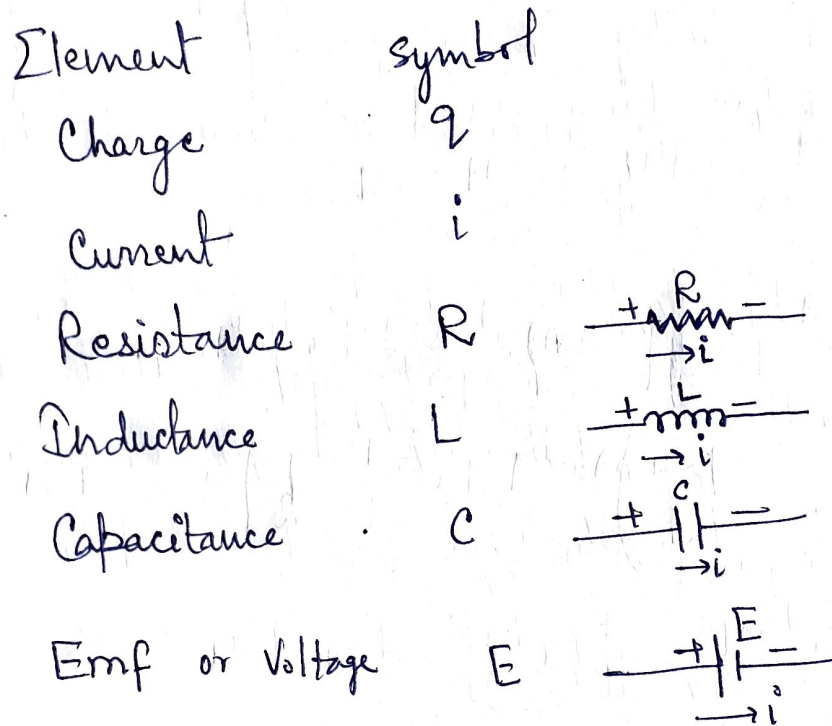 Element symbol
Charge q
Current i
Resistance R + R - → i
Inductance L + L - → i
Capacitance . C + C - → i
Emf or Voltage E + E - → i